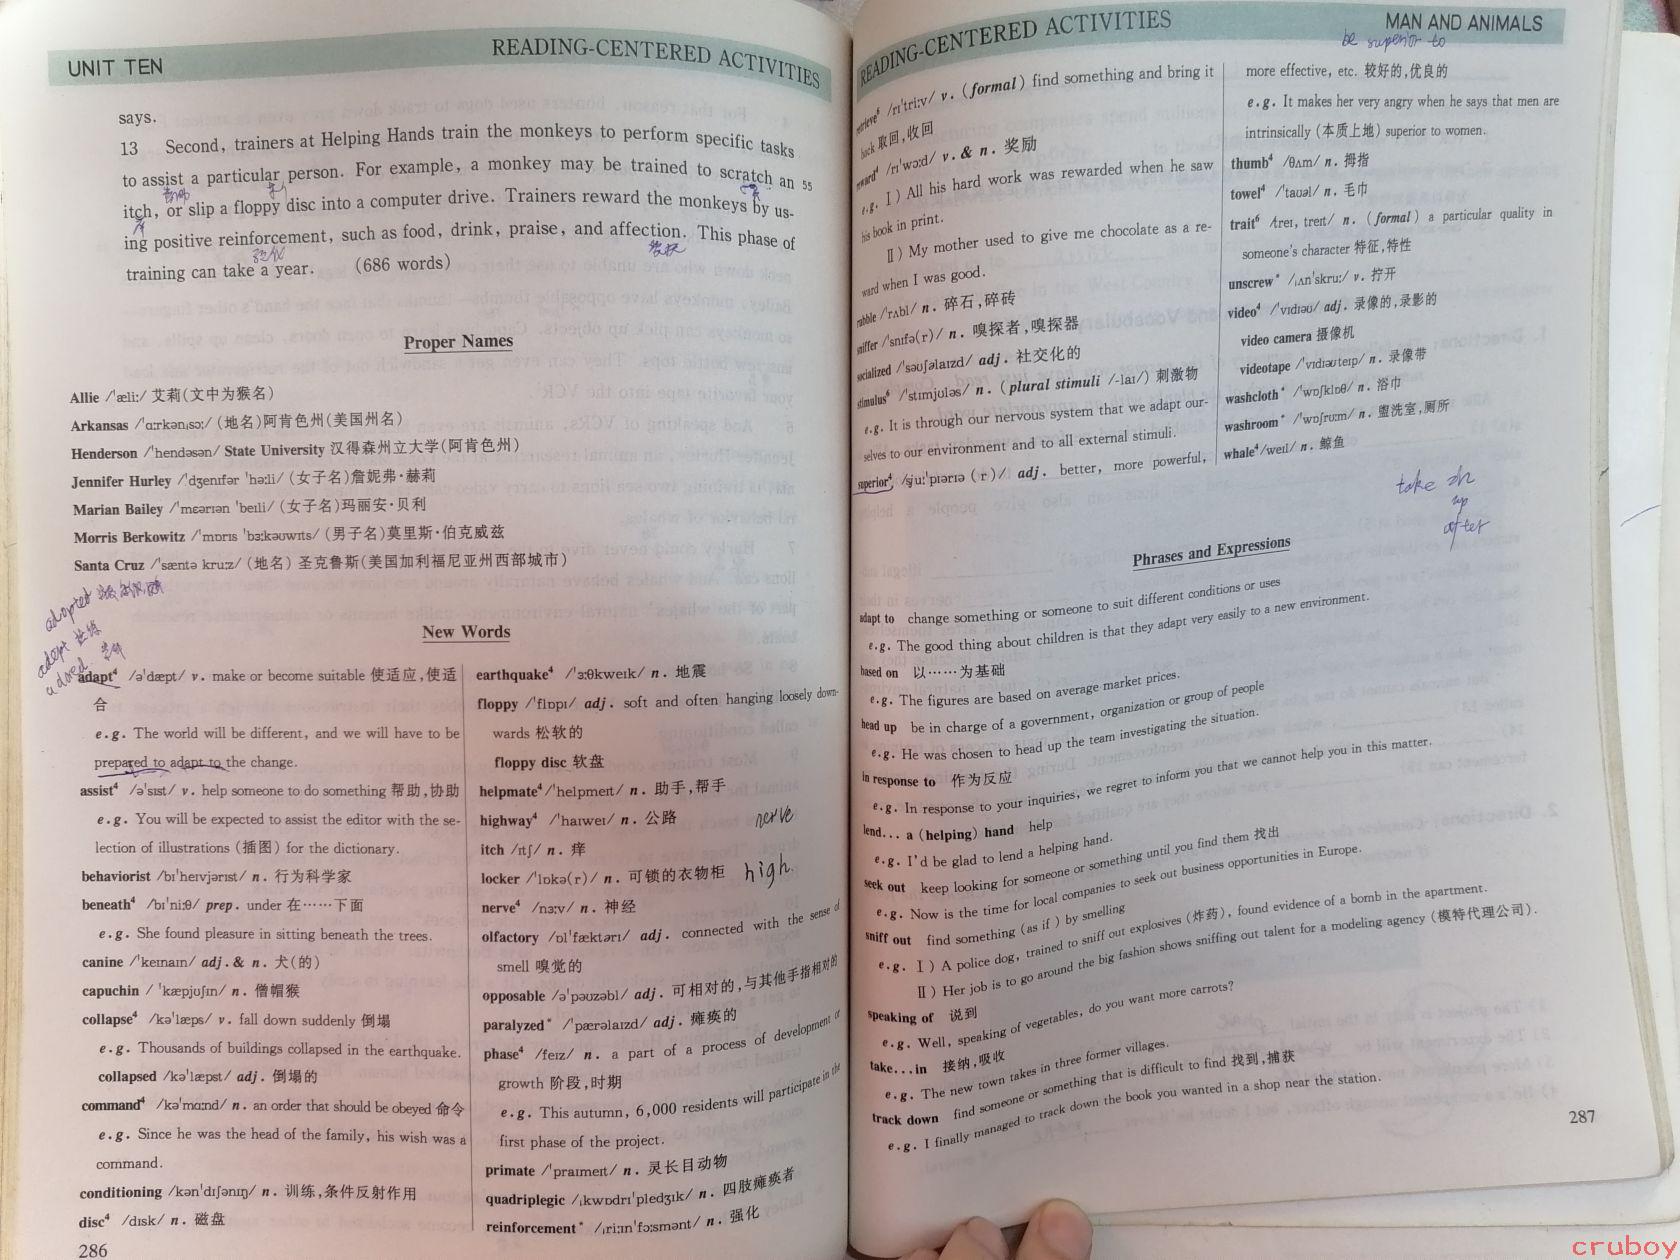 UNIT TEN
READING-CENTERED ACTIVITIES
says.
13 Second, trainers at Helping Hands train the monkeys to perform specific tasks
to assist a particular person. For example, a monkey may be trained to scratch an 55
itch, or slip a floppy disc into a computer drive. Trainers reward the monkeys by us-
ing positive reinforcement, such as food, drink, praise, and affection. This phase of
training can take a year. (686 words)
Proper Names
Allie /ˈæli:/ 艾莉(文中为猴名)
Arkansas /ˈɑ:rkənˌsɔ:/ (地名)阿肯色州(美国州名)
Henderson /ˈhendəsən/ State University 汉得森州立大学(阿肯色州)
Jennifer Hurley /ˈdʒenɪfər ˈhə:li/ (女子名)詹妮弗·赫莉
Marian Bailey /ˈmɛərɪən ˈbeɪli/ (女子名)玛丽安·贝利
Morris Berkowitz /ˈmɒrɪs ˈbɜ:kəʊwɪts/ (男子名)莫里斯·伯克威兹
Santa Cruz /ˈsæntə kru:z/ (地名) 圣克鲁斯(美国加利福尼亚州西部城市)
adopted
adept
adored
New Words
adapt⁴ /əˈdæpt/ v. make or become suitable 使适应,使适
合
e.g. The world will be different, and we will have to be
prepared to adapt to the change.
assist⁴ /əˈsɪst/ v. help someone to do something 帮助,协助
e.g. You will be expected to assist the editor with the se-
lection of illustrations (插图) for the dictionary.
behaviorist /bɪˈheɪvjərɪst/ n. 行为科学家
beneath⁴ /bɪˈni:θ/ prep. under 在……下面
e.g. She found pleasure in sitting beneath the trees.
canine /ˈkeɪnaɪn/ adj. & n. 犬(的)
capuchin /ˈkæpjʊʃɪn/ n. 僧帽猴
collapse⁴ /kəˈlæps/ v. fall down suddenly 倒塌
e.g. Thousands of buildings collapsed in the earthquake.
collapsed /kəˈlæpst/ adj. 倒塌的
command⁴ /kəˈmɑ:nd/ n. an order that should be obeyed 命令
e.g. Since he was the head of the family, his wish was a
command.
conditioning /kənˈdɪʃənɪŋ/ n. 训练,条件反射作用
disc⁴ /dɪsk/ n. 磁盘
286
earthquake⁴ /ˈɜ:θkweɪk/ n. 地震
floppy /ˈflɒpɪ/ adj. soft and often hanging loosely down-
wards 松软的
floppy disc 软盘
helpmate⁴ /ˈhelpmeɪt/ n. 助手,帮手
highway⁴ /ˈhaɪweɪ/ n. 公路
nerve
itch /ɪtʃ/ n. 痒
locker /ˈlɒkə(r)/ n. 可锁的衣物柜
high
nerve⁴ /nɜ:v/ n. 神经
olfactory /ɒlˈfæktərɪ/ adj. connected with the sense of
smell 嗅觉的
opposable /əˈpəʊzəbl/ adj. 可相对的,与其他手指相对的
paralyzed* /ˈpærəlaɪzd/ adj. 瘫痪的
phase⁴ /feɪz/ n. a part of a process of development or
growth 阶段,时期
e.g. This autumn, 6,000 residents will participate in the
first phase of the project.
primate /ˈpraɪmeɪt/ n. 灵长目动物
quadriplegic /ˌkwɒdrɪˈpledʒɪk/ n. 四肢瘫痪者
reinforcement* /ˌri:ɪnˈfɔ:smənt/ n. 强化
READING-CENTERED ACTIVITIES
MAN AND ANIMALS
be superior to
retrieve⁶ /rɪˈtri:v/ v. (formal) find something and bring it
back 取回,收回
reward⁴ /rɪˈwɔ:d/ v. & n. 奖励
e.g. Ⅰ) All his hard work was rewarded when he saw
his book in print.
Ⅱ) My mother used to give me chocolate as a re-
ward when I was good.
rubble /ˈrʌbl/ n. 碎石,碎砖
sniffer /ˈsnɪfə(r)/ n. 嗅探者,嗅探器
socialized /ˈsəʊʃəlaɪzd/ adj. 社交化的
stimulus⁶ /ˈstɪmjʊləs/ n. (plural stimuli /-laɪ/) 刺激物
e.g. It is through our nervous system that we adapt our-
selves to our environment and to all external stimuli.
superior⁴ /sju:ˈpɪərɪə (r)/ adj. better, more powerful,
more effective, etc. 较好的,优良的
e.g. It makes her very angry when he says that men are
intrinsically (本质上地) superior to women.
thumb⁴ /θʌm/ n. 拇指
towel⁴ /ˈtaʊəl/ n. 毛巾
trait⁶ /treɪ, treɪt/ n. (formal) a particular quality in
someone's character 特征,特性
unscrew* /ˌʌnˈskru:/ v. 拧开
video⁴ /ˈvɪdɪəʊ/ adj. 录像的,录影的
video camera 摄像机
videotape /ˈvɪdɪəʊteɪp/ n. 录像带
washcloth* /ˈwɒʃklɒθ/ n. 浴巾
washroom* /ˈwɒʃrʊ:m/ n. 盥洗室,厕所
whale⁴ /weɪl/ n. 鲸鱼
take
up
after
Phrases and Expressions
adapt to change something or someone to suit different conditions or uses
e.g. The good thing about children is that they adapt very easily to a new environment.
based on 以……为基础
e.g. The figures are based on average market prices.
head up be in charge of a government, organization or group of people
e.g. He was chosen to head up the team investigating the situation.
in response to 作为反应
e.g. In response to your inquiries, we regret to inform you that we cannot help you in this matter.
lend... a (helping) hand help
e.g. I'd be glad to lend a helping hand.
seek out keep looking for someone or something until you find them 找出
e.g. Now is the time for local companies to seek out business opportunities in Europe.
sniff out find something (as if) by smelling
e.g. Ⅰ) A police dog, trained to sniff out explosives (炸药), found evidence of a bomb in the apartment.
Ⅱ) Her job is to go around the big fashion shows sniffing out talent for a modeling agency (模特代理公司).
speaking of 说到
e.g. Well, speaking of vegetables, do you want more carrots?
take...in 接纳,吸收
e.g. The new town takes in three former villages.
track down find someone or something that is difficult to find 找到,捕获
e.g. I finally managed to track down the book you wanted in a shop near the station.
287
cruboy